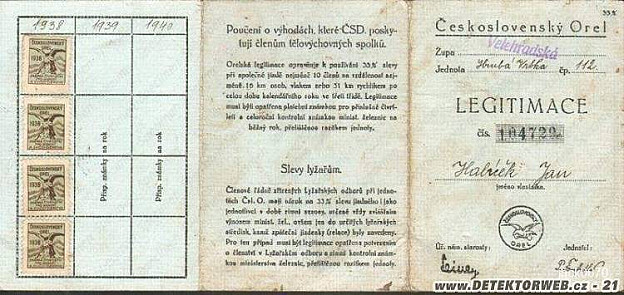 1938 1939 1940
ČESKOSLOVENSKÝ
OREL
1938
ČESKOSLOVENSKÝ
OREL
1938
ČESKOSLOVENSKÝ
OREL
1938
ČESKOSLOVENSKÝ
OREL
1938
Přísp. známky na rok
Přísp. známky na rok
Poučení o výhodách, které ČSD. posky-
tují členům tělovýchovných spolků.
Orelská legitimace opravňuje k používání 33% slevy
při společné jízdě nejméně 10 členů na vzdálenost nej-
méně 16 km osob. vlakem nebo 31 km rychlíkem po
celou dobu kalendářního roku ve třetí třídě. Legitimace
musí býti opatřena platební známkou pro příslušné čtvrt-
letí a celoroční kontrolní známkou minist. železnic na
běžný rok, přetištěnou razítkem jednoty.
Slevy lyžařům.
Členové řádně zřízených Lyžařských odborů při jedno-
tách Čsl. O. mají nárok na 33% slevu jízdného i jako
jednotlivci v době zimní sezony, určené vždy zvláštním
výnosem minist. žel., ovšem jen do určitých lyžařských
středisk, kamž zpáteční jízdenky (relace) byly zavedeny.
Pro ten případ musí být legitimace opatřena potvrzením
o členství v Lyžařském odboru a zimní kontrolní znám-
kou ministerstva železnic, přetištěnou razítkem jednoty.
33%
Československý Orel
Župa Velehradská
Jednota Hrubá Vrbka čp. 112
LEGITIMACE
čís. 104729
Jan
jméno vlastníka.
ČESKOSLOVENSKÝ
OREL
Úř. nám. starosty: Jednatel:
WWW.DETEKTORWEB.cz - 21